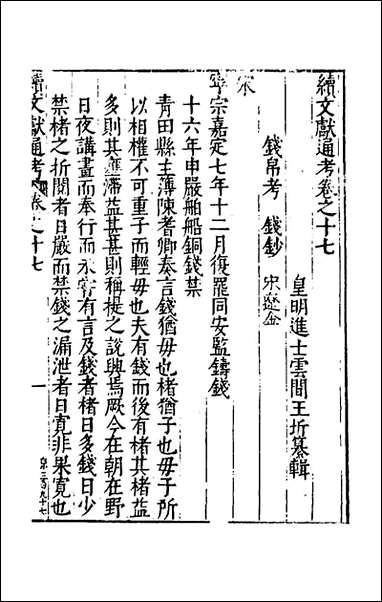 續文獻通考卷之十七
皇明進士雲間王圻纂輯
錢帛考　錢鈔　宋遼金
宋
寧宗嘉定七年十二月復罷同安監鑄錢
十六年申嚴舶船銅錢禁
青田縣主薄陳耆卿奏言錢猶母也楮猶子也母子所
以相權不可重子而輕母也夫有錢而後有楮其楮益
多則其壅滯益甚甚則稱提之說興焉厥今在朝在野
日夜講畫而奉行而未嘗有言及錢者楮日多錢日少
禁楮之折閱者日嚴而禁錢之漏泄者日寛非果寛也
續文獻通考卷之十七
一